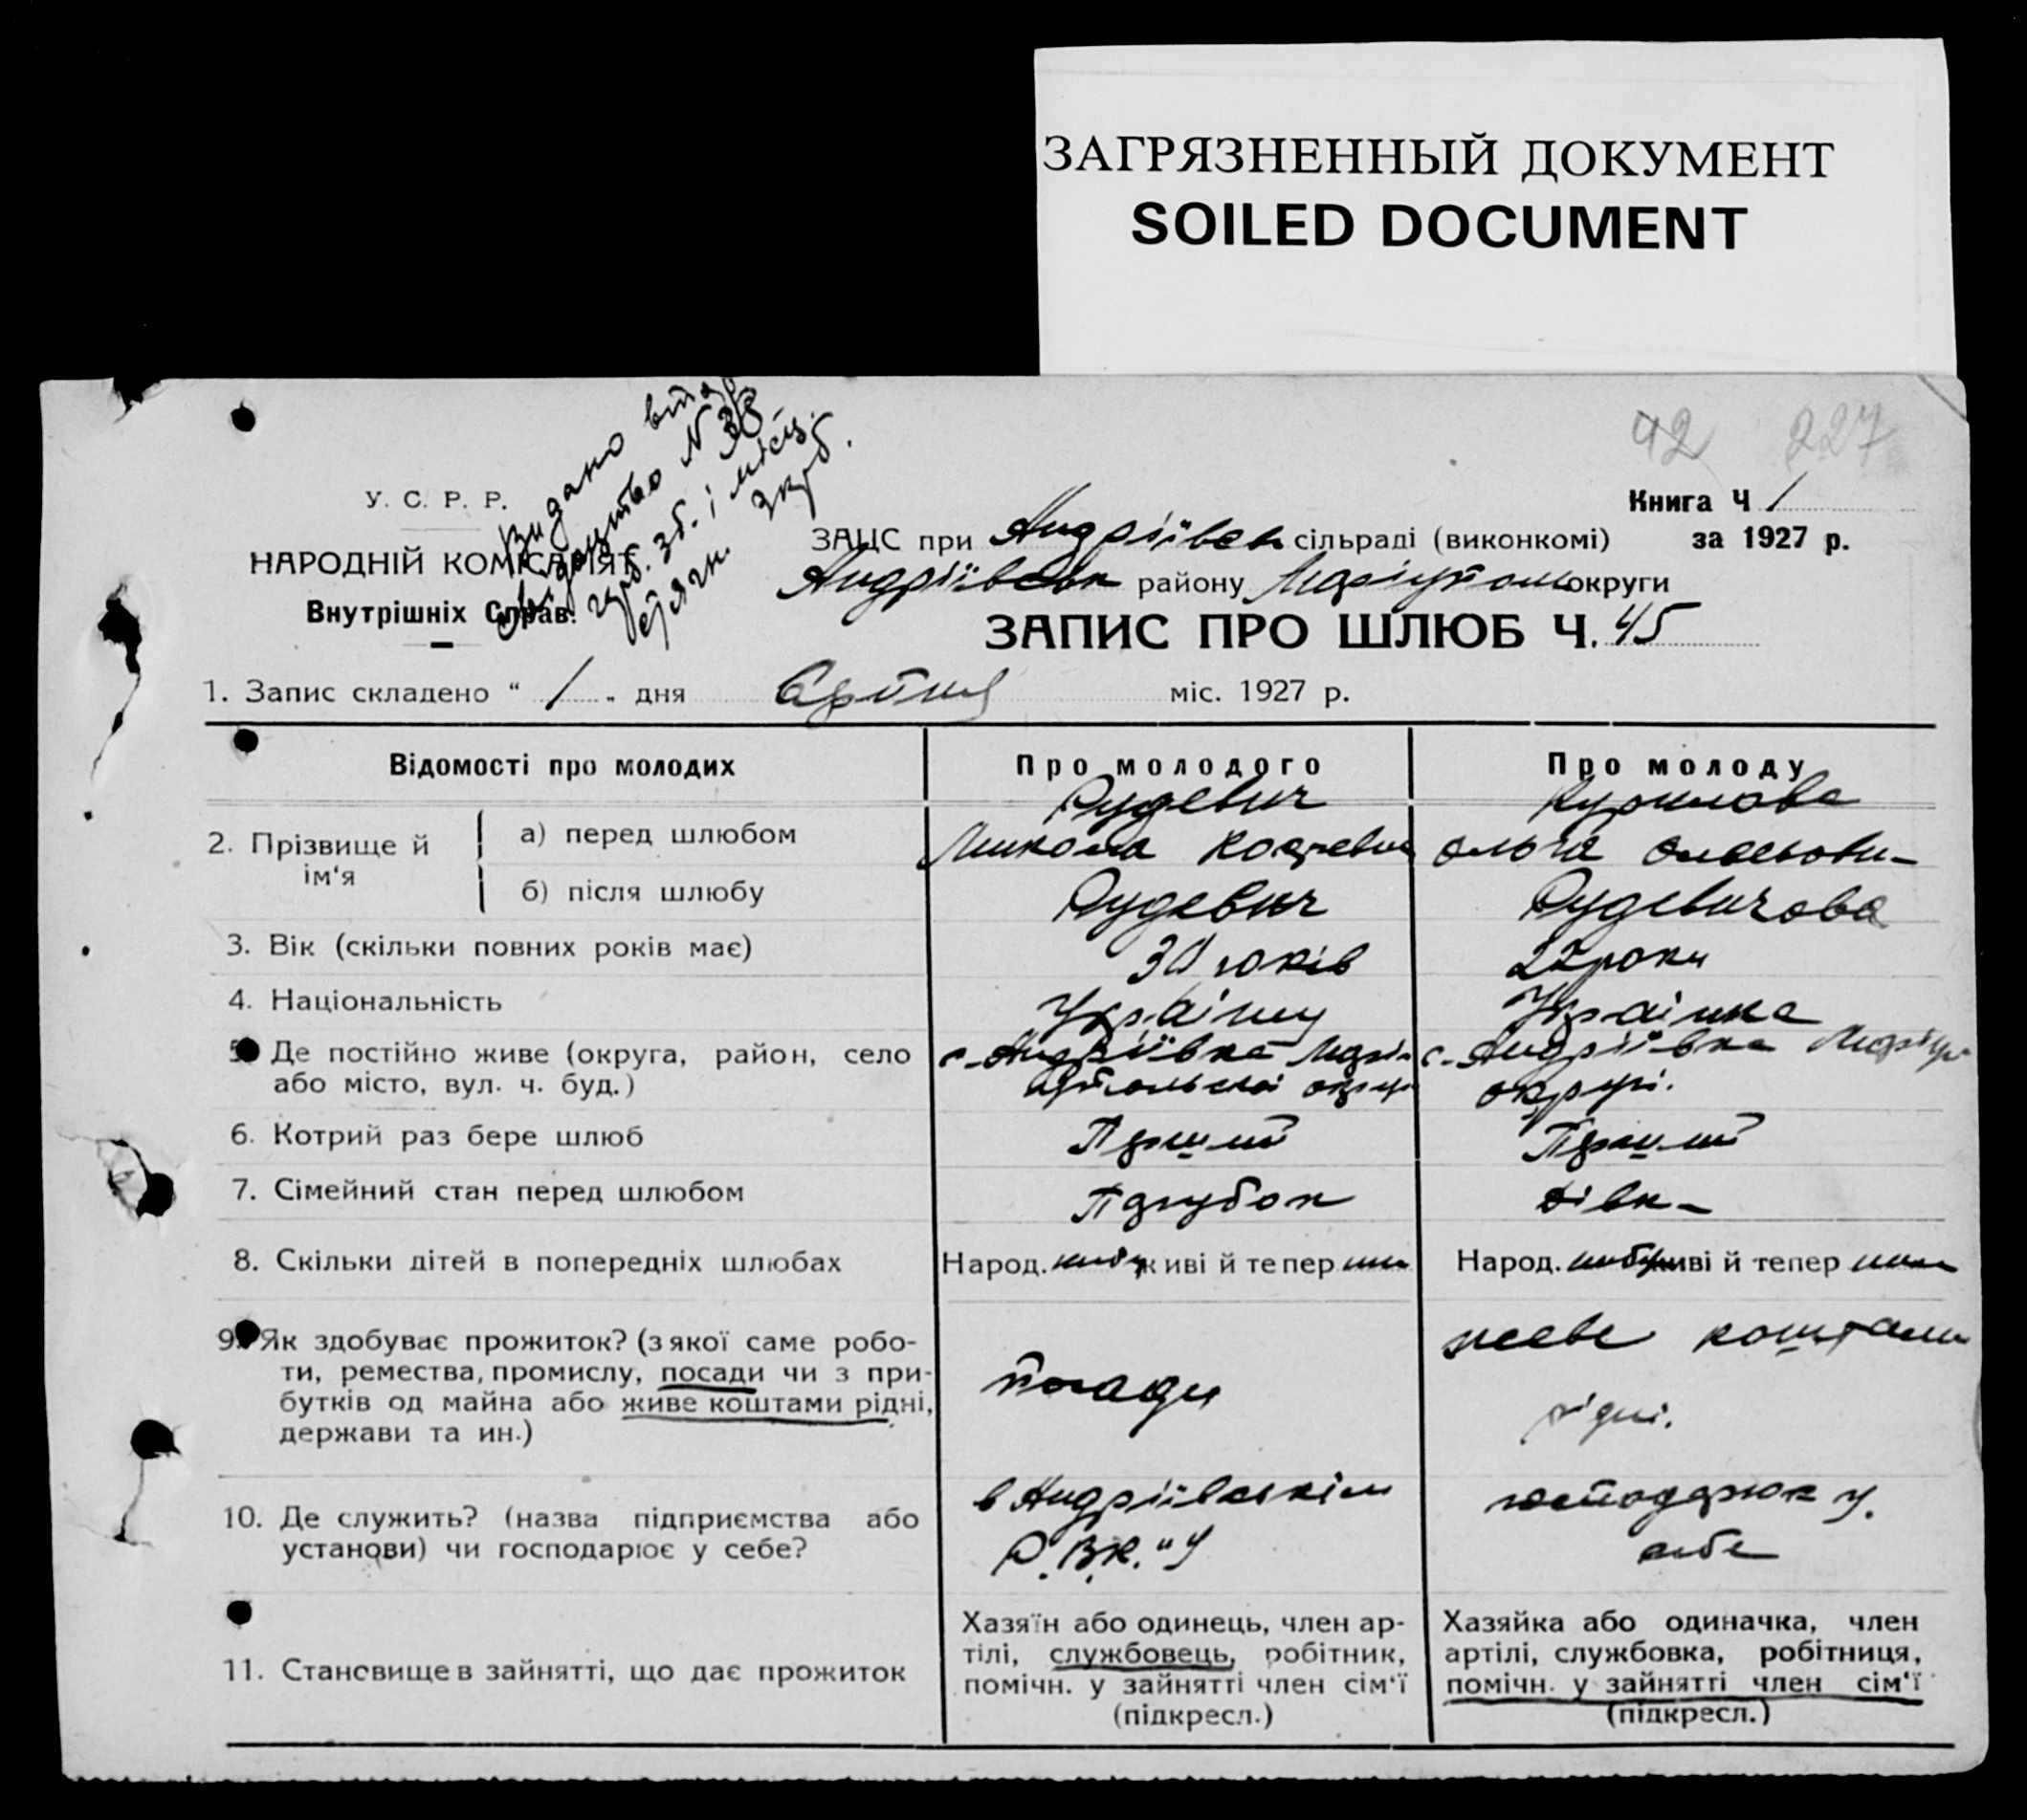 ЗАГРЯЗНЕННЫЙ ДОКУМЕНТ
SOILED DOCUMENT
42 227
Видано
N 38
У. С. Р. Р.
НАРОДНІЙ КОМІСАРІЯТ
Внутрішніх Справ.
Книга Ч 1
за 1927 р.
ЗАЦС при Андріївськ сільраді (виконкомі)
Андріївськ району Маріупольськ округи
ЗАПИС ПРО ШЛЮБ Ч. 45
1. Запис складено “ 1 „ дня Серпня міс. 1927 р.
Відомості про молодих
Про молодого
Про молоду
2. Прізвище й ім‘я
а) перед шлюбом
Рудевич
Микола
Курилова
Ольга
б) після шлюбу
Рудевич
Рудевичова
3. Вік (скільки повних років має)
30 років
22 роки
4. Національність
Українець
Українка
5. Де постійно живе (округа, район, село
або місто, вул. ч. буд.)
с. Андріївка Марі
упольської округи
с. Андріївка Маріуп
округи.
6. Котрий раз бере шлюб
Перший
Перший
7. Сімейний стан перед шлюбом
Парубок
Дівка
8. Скільки дітей в попередніх шлюбах
Народ. живі й тепер
Народ. живі й тепер
9. Як здобуває прожиток? (з якої саме робо-
ти, ремества, промислу, посади чи з при-
бутків од майна або живе коштами рідні,
держави та ин.)
посади
живе коштами
рідні.
10. Де служить? (назва підприємства або
установи) чи господарює у себе?
в Андріївськім
Р.В.К."у
господарює у
себе
11. Становище в зайнятті, що дає прожиток
Хазяїн або одинець, член ар-
тілі, службовець, робітник,
помічн. у зайнятті член сім‘ї
(підкресл.)
Хазяйка або одиначка, член
артілі, службовка, робітниця,
помічн. у зайнятті член сім‘ї
(підкресл.)